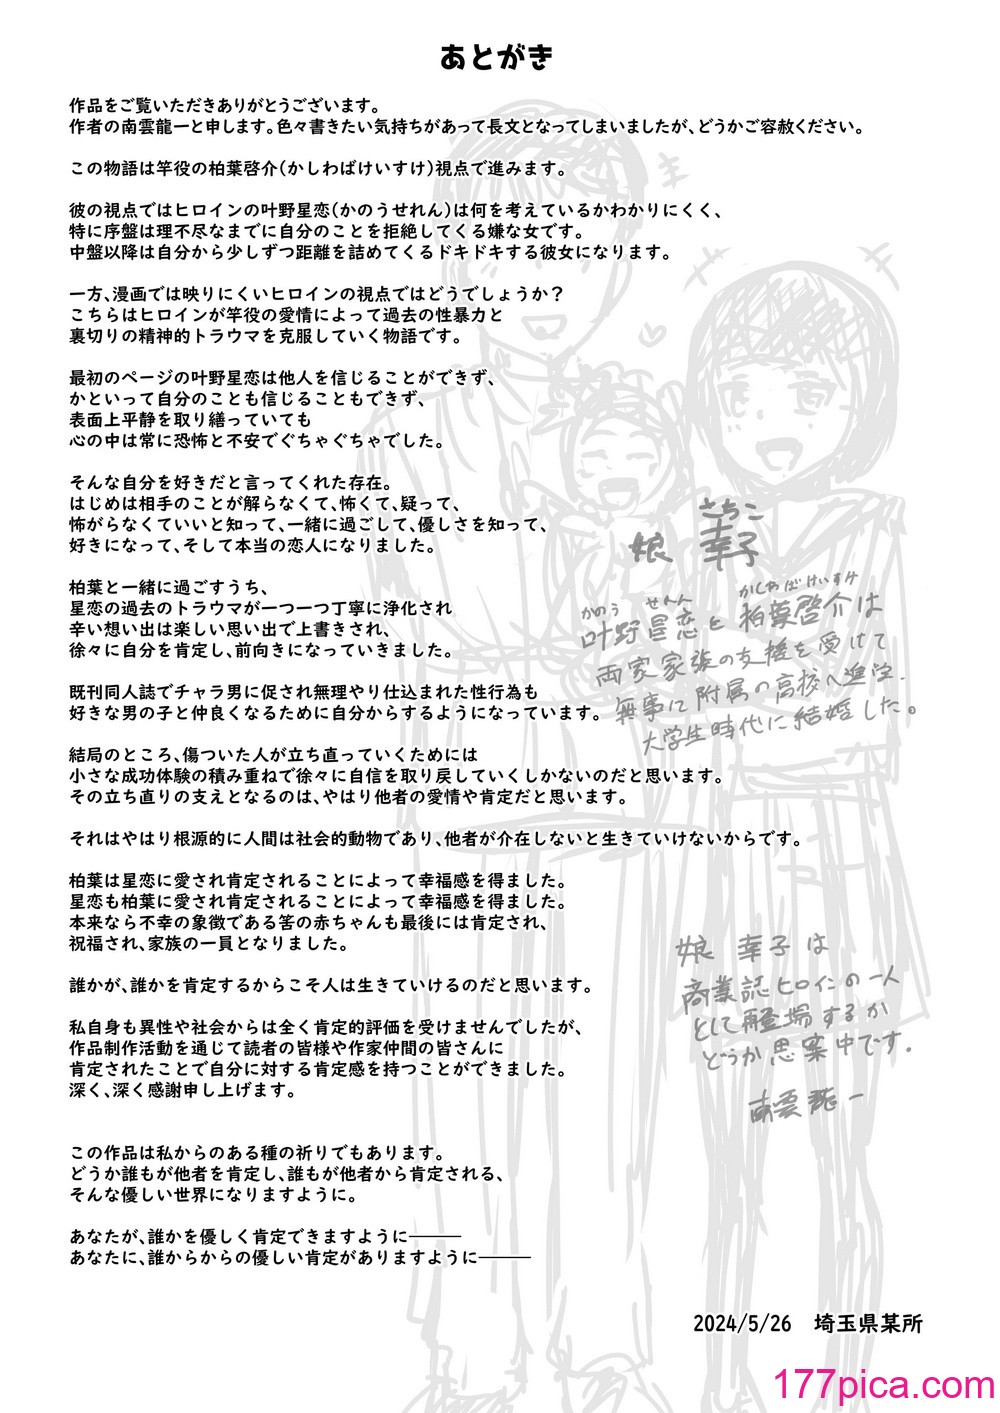 あとがき
作品をご覧いただきありがとうございます。
作者の南雲龍一と申します。色々書きたい気持ちがあって長文となってしまいましたが、どうかご容赦ください。
この物語は竿役の柏葉啓介(かしわばけいすけ)視点で進みます。
彼の視点ではヒロインの叶野星恋(かのうせれん)は何を考えているかわかりにくく、
特に序盤は理不尽なまでに自分のことを拒絶してくる嫌な女です。
中盤以降は自分から少しずつ距離を詰めてくるドキドキする彼女になります。
一方、漫画では映りにくいヒロインの視点ではどうでしょうか?
こちらはヒロインが竿役の愛情によって過去の性暴力と
裏切りの精神的トラウマを克服していく物語です。
最初のページの叶野星恋は他人を信じることができず、
かといって自分のことも信じることもできず、
表面上平静を取り繕っていても
心の中は常に恐怖と不安でぐちゃぐちゃでした。
そんな自分を好きだと言ってくれた存在。
はじめは相手のことが解らなくて、怖くて、疑って、
怖がらなくていいと知って、一緒に過ごして、優しさを知って、
好きになって、そして本当の恋人になりました。
柏葉と一緒に過ごすうち、
星恋の過去のトラウマが一つ一つ丁寧に浄化され
辛い想い出は楽しい思い出で上書きされ、
徐々に自分を肯定し、前向きになっていきました。
既刊同人誌でチャラ男に促され無理やり仕込まれた性行為も
好きな男の子と仲良くなるために自分からするようになっています。
結局のところ、傷ついた人が立ち直っていくためには
小さな成功体験の積み重ねで徐々に自信を取り戻していくしかないのだと思います。
その立ち直りの支えとなるのは、やはり他者の愛情や肯定だと思います。
それはやはり根源的に人間は社会的動物であり、他者が介在しないと生きていけないからです。
柏葉は星恋に愛され肯定されることによって幸福感を得ました。
星恋も柏葉に愛され肯定されることによって幸福感を得ました。
本来なら不幸の象徴である筈の赤ちゃんも最後には肯定され、
祝福され、家族の一員となりました。
誰かが、誰かを肯定するからこそ人は生きていけるのだと思います。
私自身も異性や社会からは全く肯定的評価を受けませんでしたが、
作品制作活動を通じて読者の皆様や作家仲間の皆さんに
肯定されたことで自分に対する肯定感を持つことができました。
深く、深く感謝申し上げます。
この作品は私からのある種の祈りでもあります。
どうか誰もが他者を肯定し、誰もが他者から肯定される、
そんな優しい世界になりますように。
あなたが、誰かを優しく肯定できますように―――
あなたに、誰からからの優しい肯定がありますように―――
さちこ
娘 幸子
かのう せれん かしわばけいすけ
叶野星恋と柏葉啓介は
両家家族の支援を受けて
無事に附属の高校へ進学.
大学生時代に結婚した。
娘 幸子は
商業誌ヒロインの一人
として再登場するか
どうか思案中です.
南雲龍一
2024/5/26 埼玉県某所
177pica.com